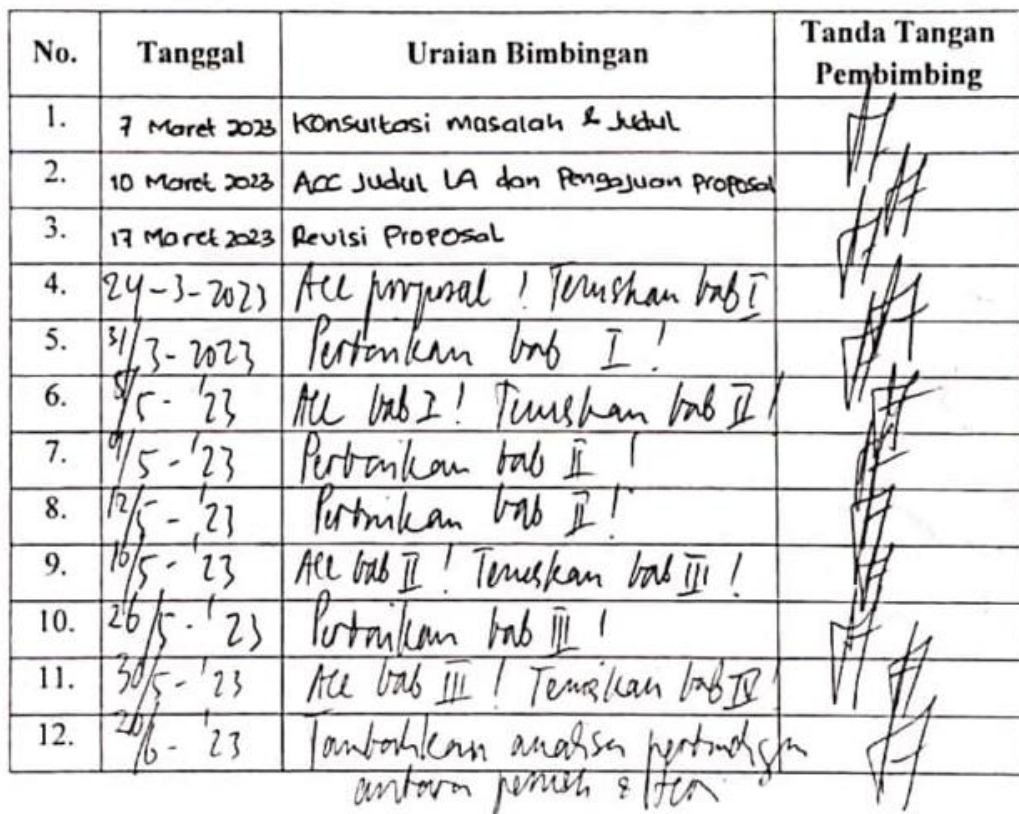 No. Tanggal Uraian Bimbingan Tanda Tangan Pembimbing
1. 7 Maret 2023 Konsultasi masalah & Judul
2. 10 Maret 2023 ACC Judul LA dan Pengajuan Proposal
3. 17 Maret 2023 Revisi Proposal
4. 24-3-2023 Acc proposal ! Teruskan bab I
5. 31/3-2023 Perbaikan bab I !
6. 5/5-'23 Acc bab I ! Teruskan bab II !
7. 9/5-'23 Perbaikan bab II !
8. 12/5-'23 Perbaikan bab II !
9. 16/5-'23 Acc bab II ! Teruskan bab III !
10. 26/5-'23 Perbaikan bab III !
11. 30/5-'23 Acc bab III ! Teruskan bab IV !
12. /6-'23 Tambahkan analisa
antara &